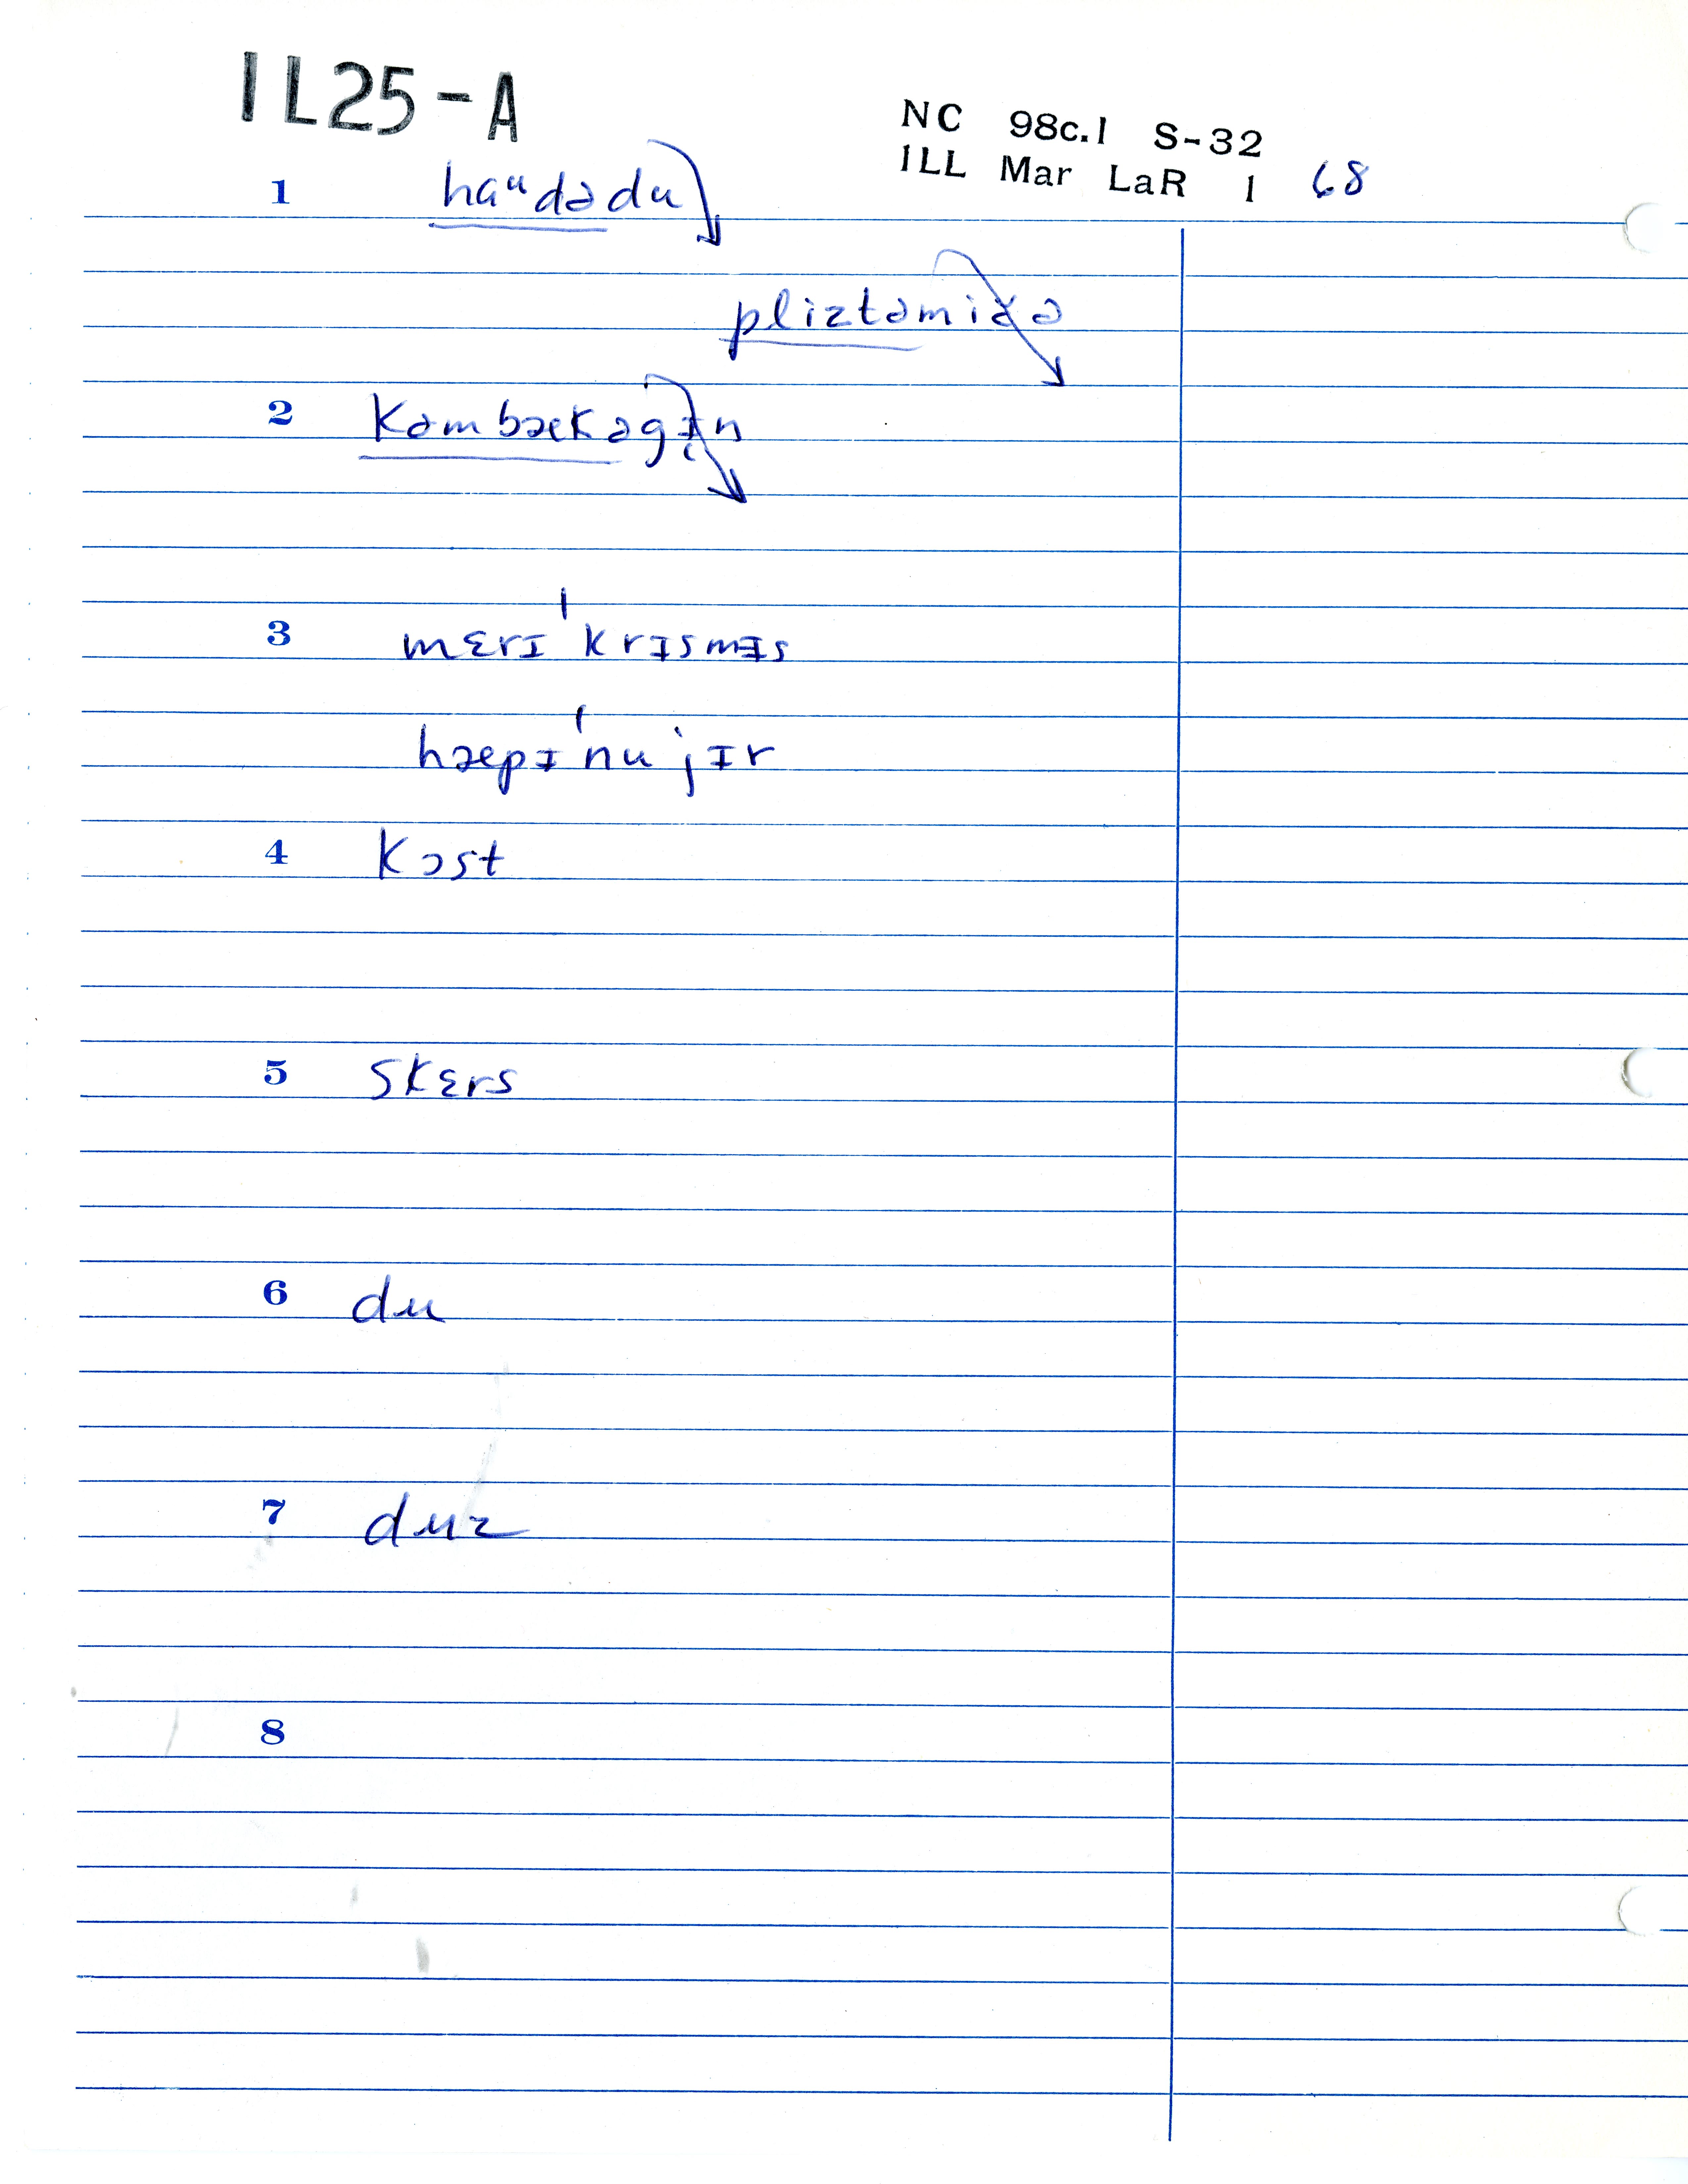 IL25-A
NC 98c.1 S-32
ILL Mar LaR 1 68
1 haᵘdədu
pliztəmiɾə
2 kəmbækəgɪn
3 mɛrɪ ˈkrɪsmɪs
hæpɪ ˈnu ˈjɪr
4 kɔst
5 skɛrs
6 du
7 duz
8